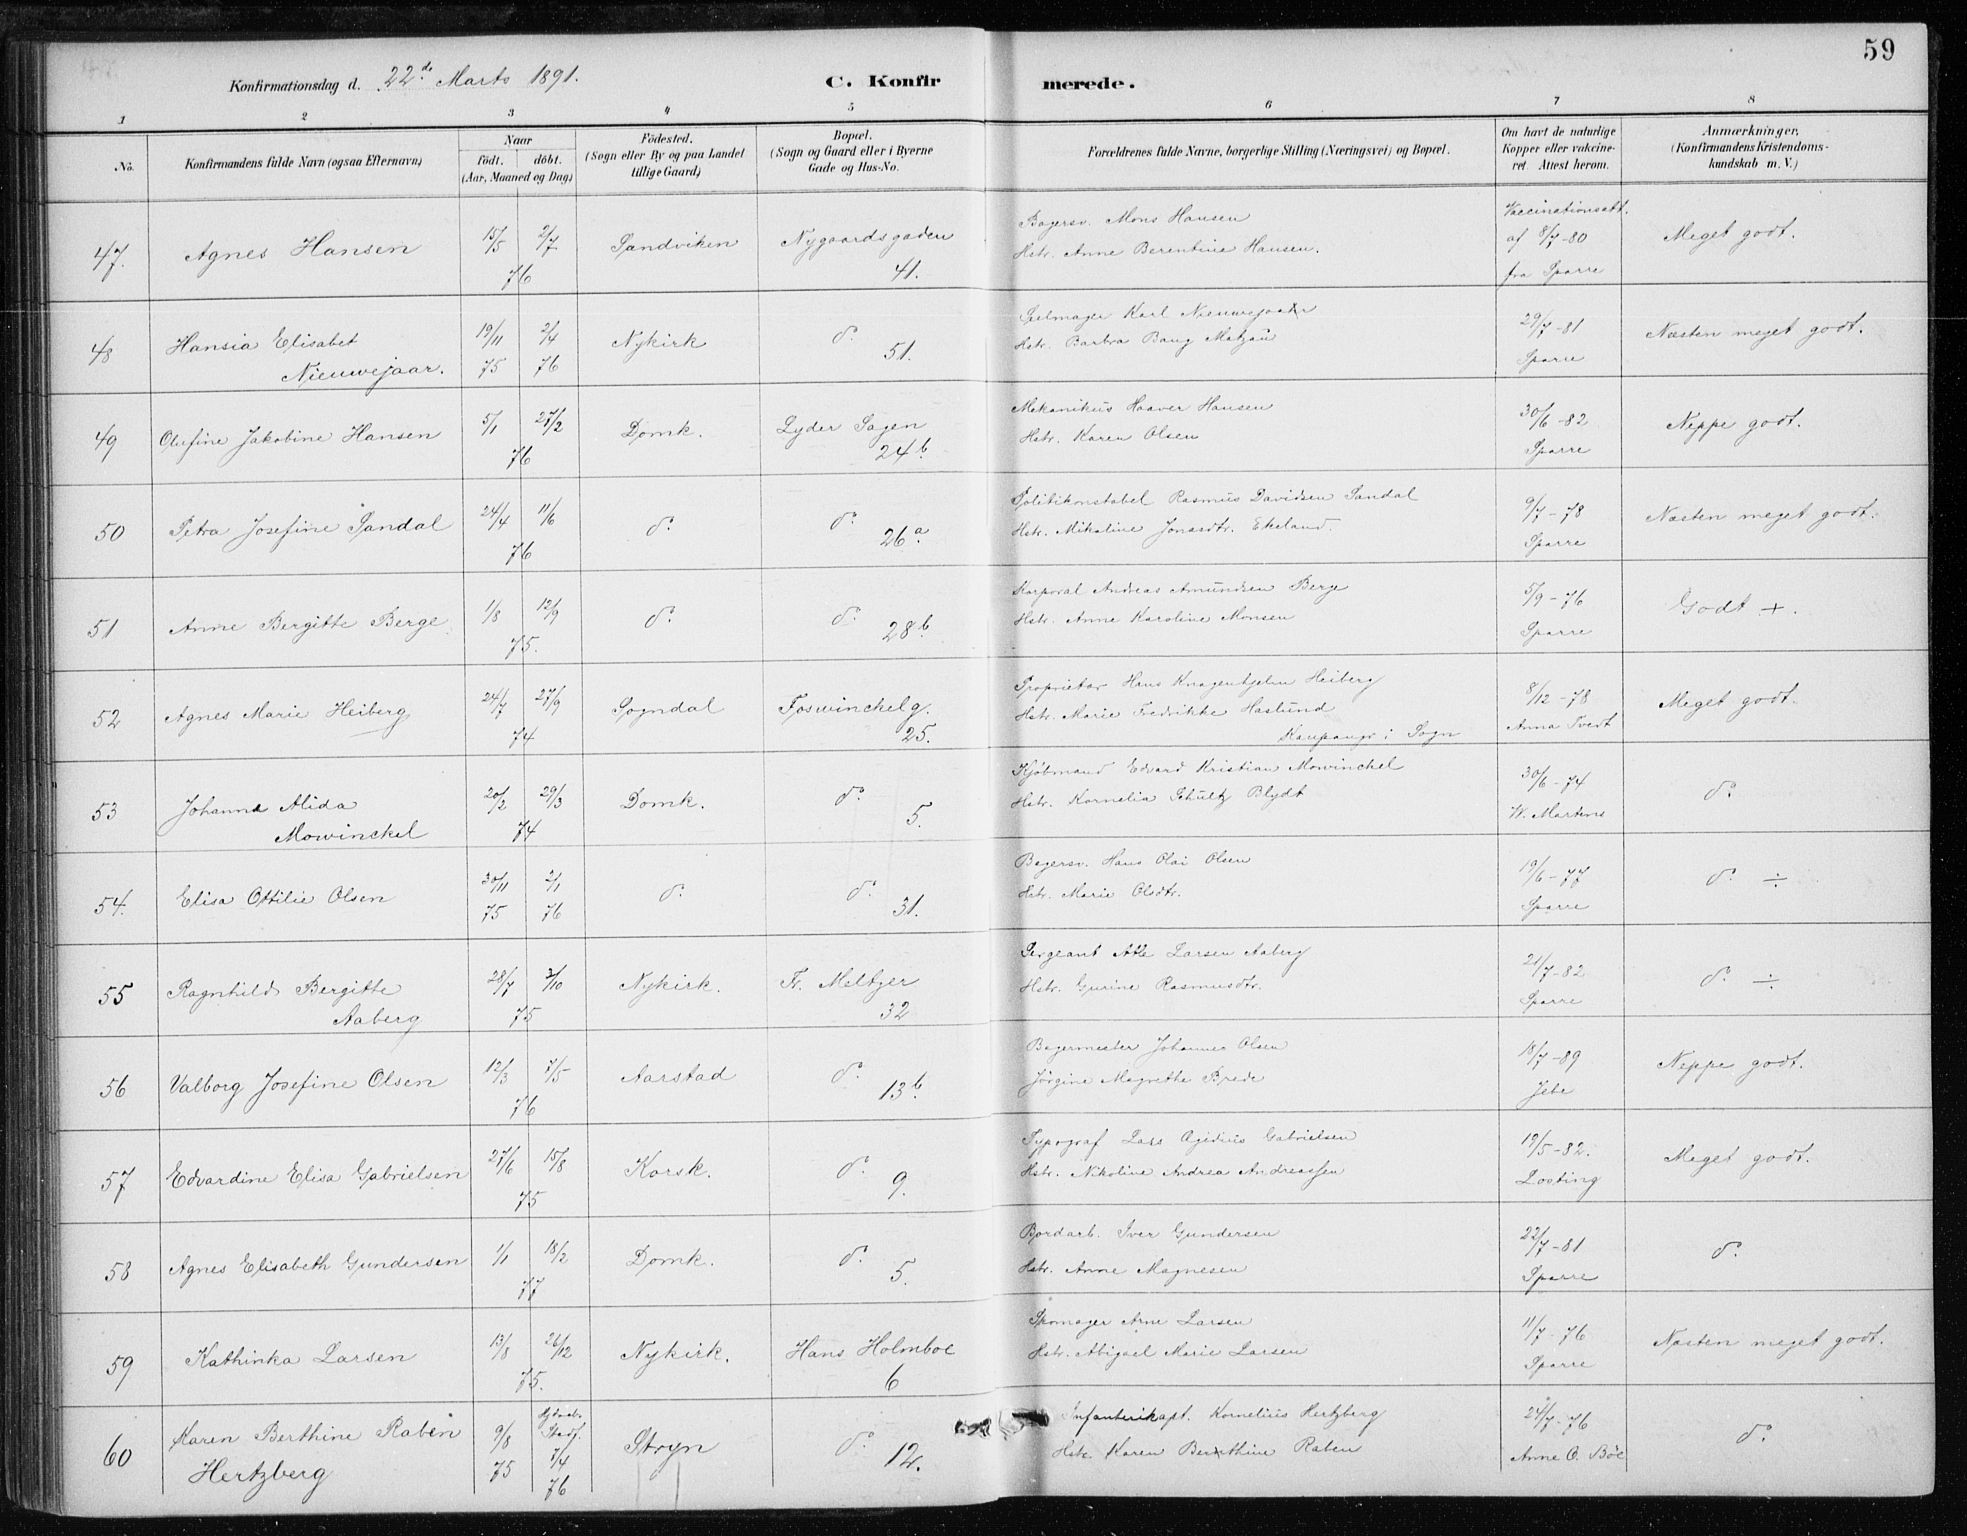 59
Konfirmationsdag d. 22de Marts 1891.
C. Konfirmerede.
1 2 3 4 5 6 7 8
No.
Konfirmandens fulde Navn (ogsaa Efternavn)
Naar
födt. döbt.
(Aar, Maaned og Dag)
Födested.
(Sogn eller By og paa Landet
tillige Gaard)
Bopæl.
(Sogn og Gaard eller i Byerne
Gade og Hus-No.
Forældrenes fulde Navne, borgerlige Stilling (Næringsvei) og Bopæl.
Om havt de naturlige
Kopper eller vakcine-
ret. Attest herom.
Anmærkninger,
(Konfirmandens Kristendoms-
kundskab m. V.)
47. Agnes Hansen 15/5 2/7 76 Sandviken Nygaardsgaden 41.
Bagersv. Mons Hansen
Hstr. Anne Berentine Hansen.
Vaccinationsatt.
af 8/7-80
fra Sparre
Meget godt.
48 Hansia Elisabet
Nieuwejaar. 19/11 75 2/4 76 Nykirk do 51.
Seilmager Karl Nieuwejaar
Hstr. Barbra Bang Matzau
29/7-81
Sparre
Næsten meget godt.
49 Olufine Jakobine Hansen 5/1 27/2 76 Domk. Lyder Sagen 24b.
Mekanikus Haaver Hansen
Hstr. Karen Olsen
30/6-82
Sparre
Neppe godt.
50 Petra Josefine Sandal 24/4 11/6 76 do do 26a.
Politikonstabel Rasmus Davidsen Sandal
Hstr. Mikaline Jonasdtr. Ekeland
9/7-78
Sparre
Næsten meget godt.
51 Anne Bergitte Berge 1/8 12/9 75. do do 28b.
Korporal Andreas Amundsen Berge
Hstr. Anne Karoline Monsen
5/9-76
Sparre
Godt +.
52 Agnes Marie Heiberg 24/7 27/9 74 Sogndal Foswinckelg. 25.
Proprietær Hans Knagenhjelm Heiberg
Hstr. Marie Fredrikke Haslund
Kaupanger i Sogn
8/12-78
Anna Tvedt
Meget godt.
53 Johanna Alida
Mowinckel 20/2 29/3 74 Domk. do 5.
Kjöbmand Edvard Kristian Mowinckel
Hstr. Kornelia Schultz Blydt
30/6-74
W. Martens
do
54. Elisa Ottilie Olsen 30/11 75 2/1 76 do do 31.
Bagersv. Hans Olai Olsen
Hstr. Marie Olsdtr.
19/6-77
Sparre
do ÷
55 Ragnhild Bergitte
Aaberg 28/7 3/10 75 Nykirk. Fr. Meltzer 32
Sergeant Atle Larsen Aaberg
Hstr. Gurine Rasmusdtr.
21/7-82
Sparre
do ÷
56 Valborg Josefine Olsen 12/3 7/5 76 Aarstad do 13b.
Bagermester Johannes Olsen
Jörgine Magrethe Brede
18/7-89
Jebe
Neppe godt.
57 Edvardine Elisa Gabrielsen 27/6 15/8 75 Korsk. do 9.
Typograf Lars Egidius Gabrielsen
Hstr. Nikoline Andrea Andreassen
19/5-82.
Losting
Meget godt.
58 Agnes Elisabeth Gundersen 1/1 18/2 77 Domk. do 5.
Bordarb. Iver Gundersen
Hstr. Anne Magnesen
22/7-81
Sparre
do
59 Kathinka Larsen 13/8 26/12 75. Nykirk. Hans Holmboe 6
Skomager Arne Larsen
Hstr. Abigael Marie Larsen
11/7-76
Sparre
Næsten meget godt.
60 Karen Berthine Raben
Hertzberg 9/8 75 Stadf. 1/4 76 Stryn do 12.
Infanterikapt. Kornelius Hertzberg
Hstr. Karen Bernthine Raben
24/7-76
Anne O. Böe
do